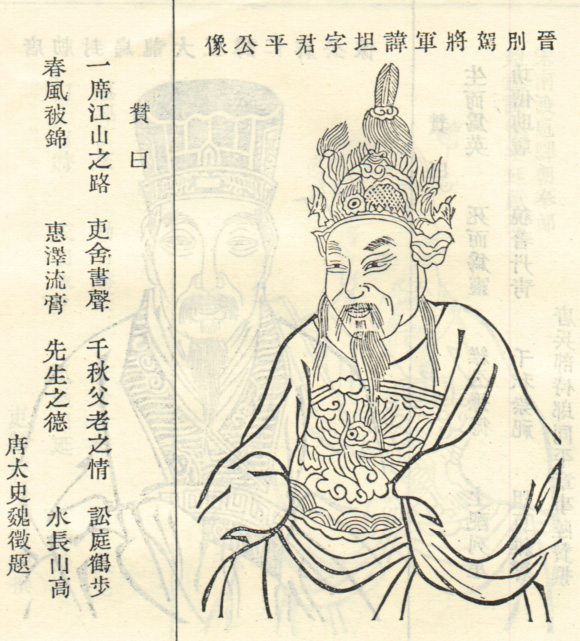 晉別駕將軍諱坦字君平公像
贊曰
一席江山之路 吏舍書聲 千秋父老之情 訟庭鶴步
春風被錦 惠澤流膏 先生之德 水長山高
唐太史魏徵題